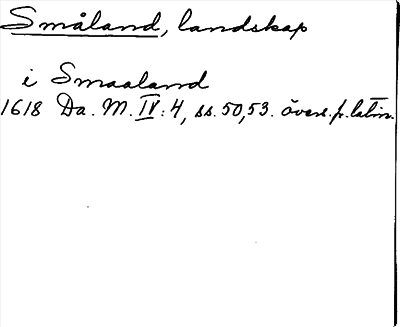 Småland, landskap
i Smaaland
1618 Da. M. IV: 4, ss. 50, 53. övers. fr. latin.